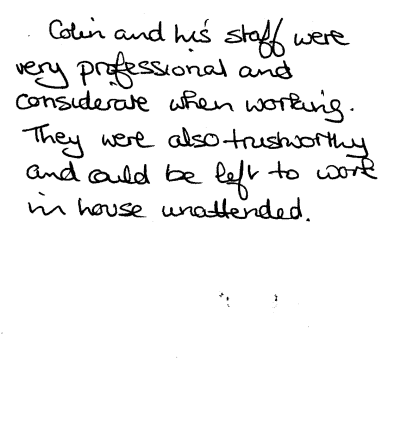 Colin and his staff were
very professional and
considerate when working.
They were also trustworthy
and could be left to work
in house unattended.